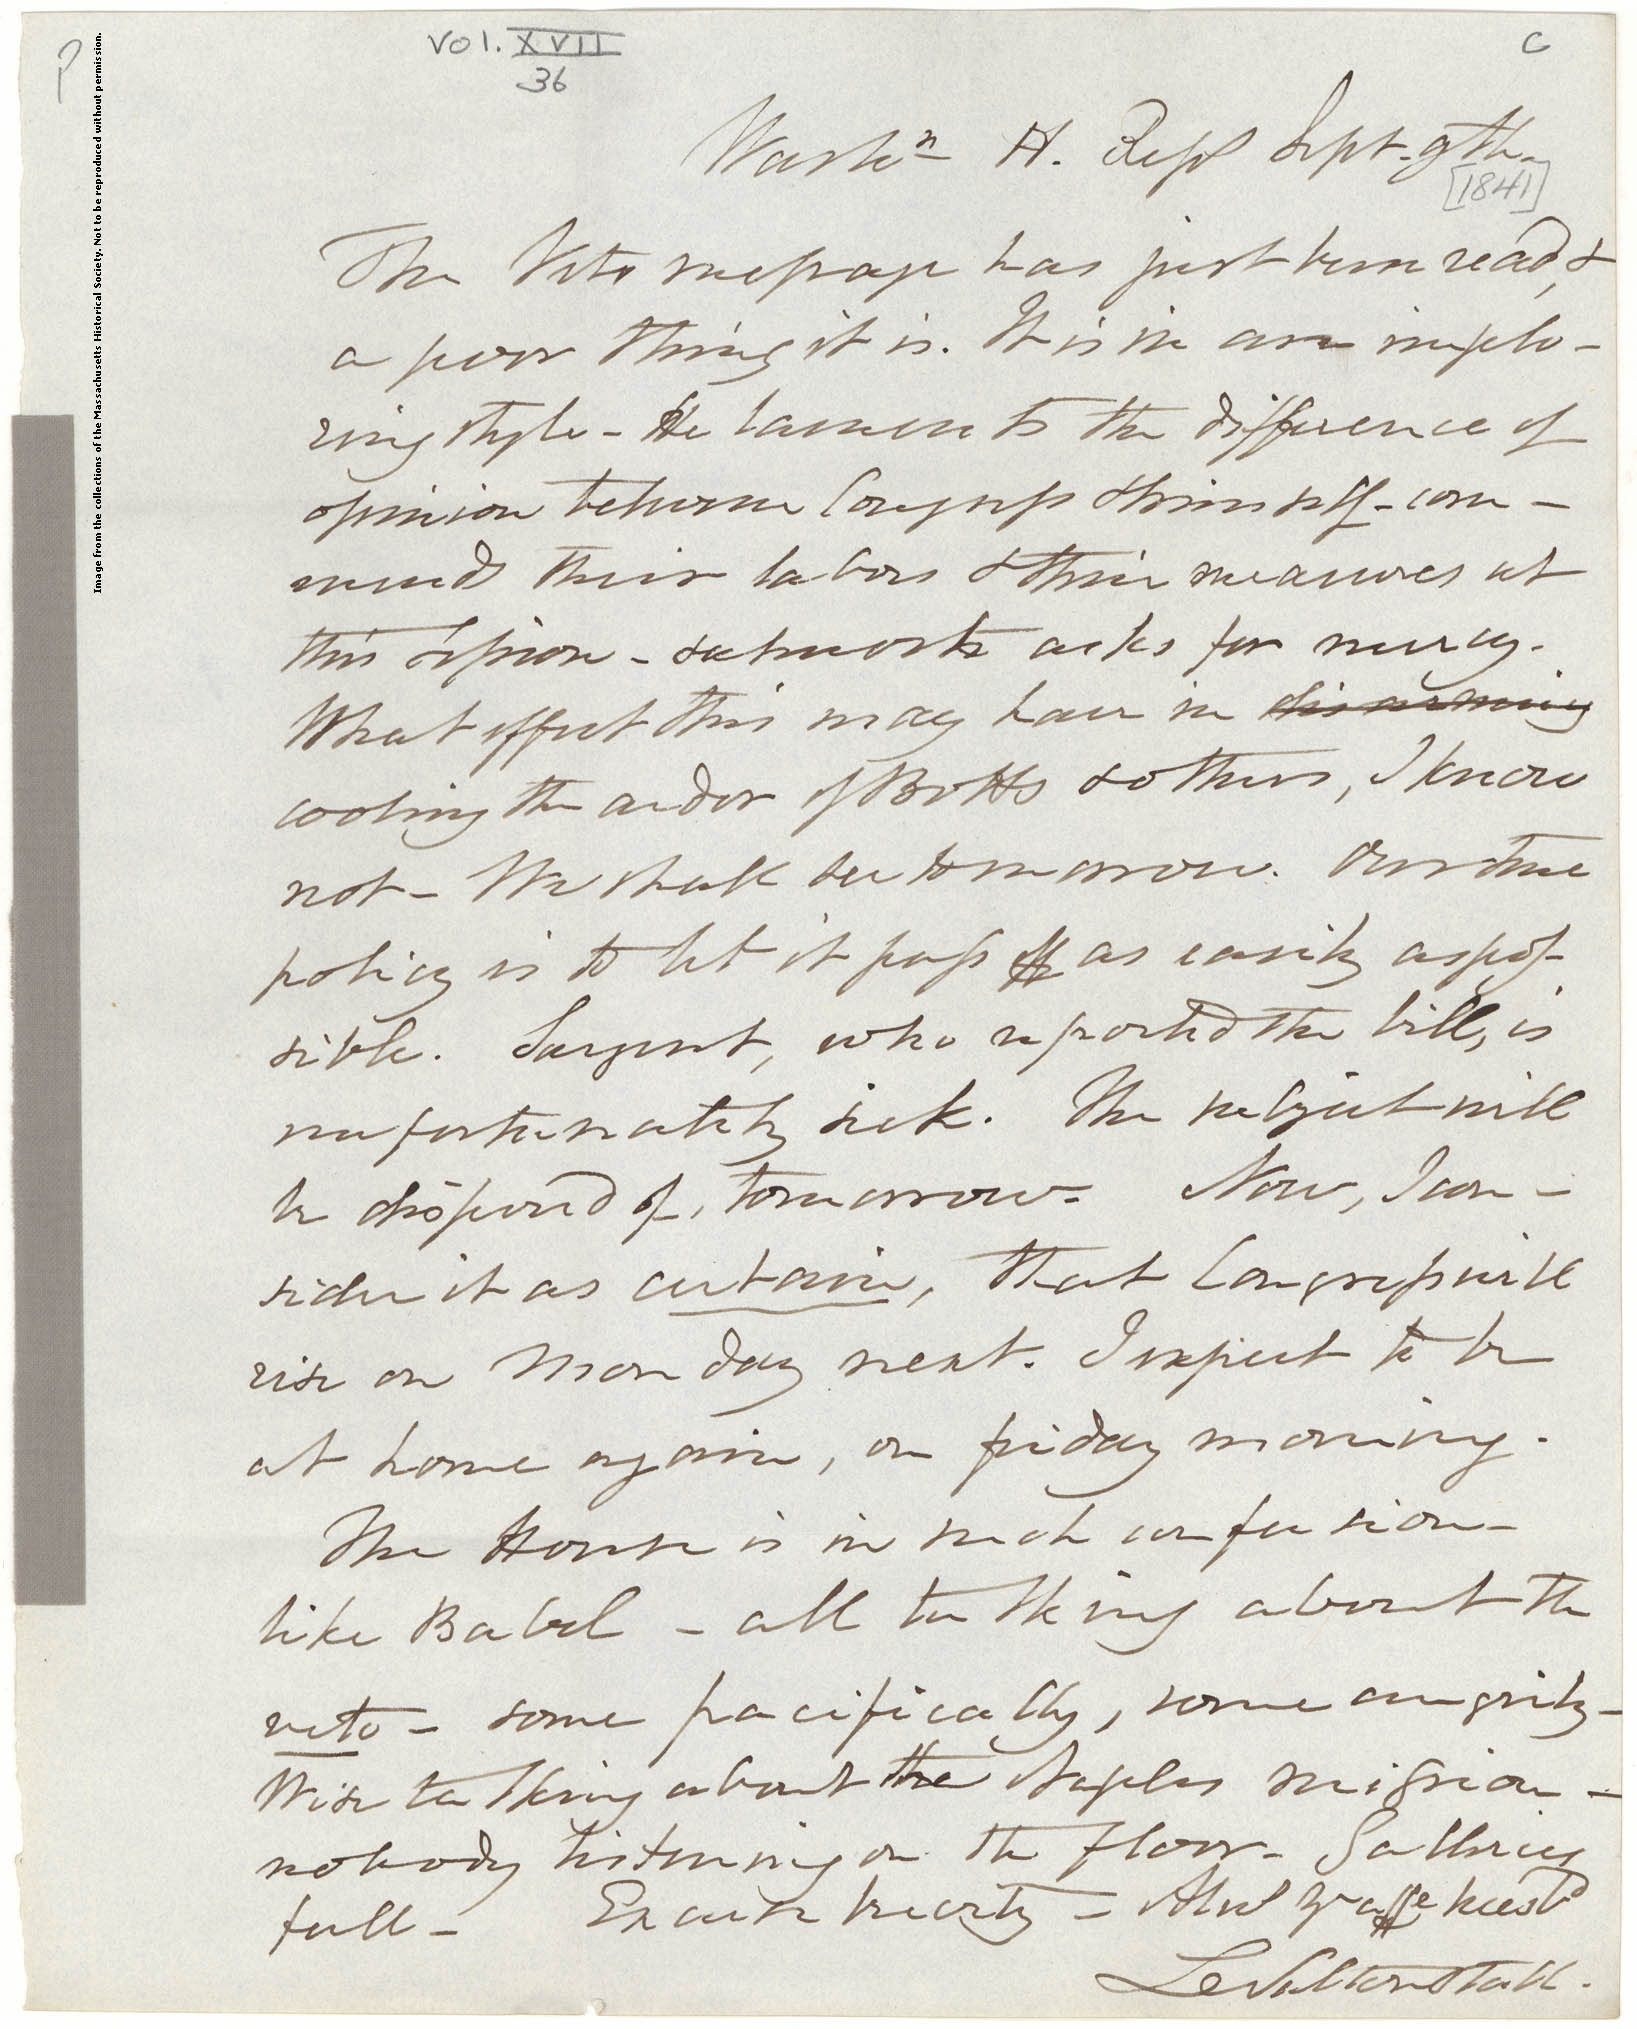 P
Vol. XVII
36
C
Image from the collections of the Massachusetts Historical Society. Not to be reproduced without permission.
Washn H. Reps Sept. 9th.
[1841]
The Veto message has just been read, &
a poor thing it is. It is in an implo-
ring style - He laments the difference of
opinion between Congress & himself - com-
mends their labors & their measures at
this session - & almost asks for mercy.
What effect this may have in disarming
cooling the ardor of Botts & others, I know
not - We shall see tomorrow. Our true
policy is to let it pass off as easily as pos-
sible. Sargent, who reported the bill, is
unfortunately sick. The subject will
be disposed of, tomorrow - Now, I con-
sider it as certain, that Congress will
rise on Monday next. I expect to be
at home again, on friday morning.
The House is in such confusion -
like Babel - all talking about the
veto - some pacifically, some angrily -
Wise talking about the Naples mission -
nobody listening on the floor - Galleries
full - Excuse brevity - Yr affe husbd
L. Saltonstall.